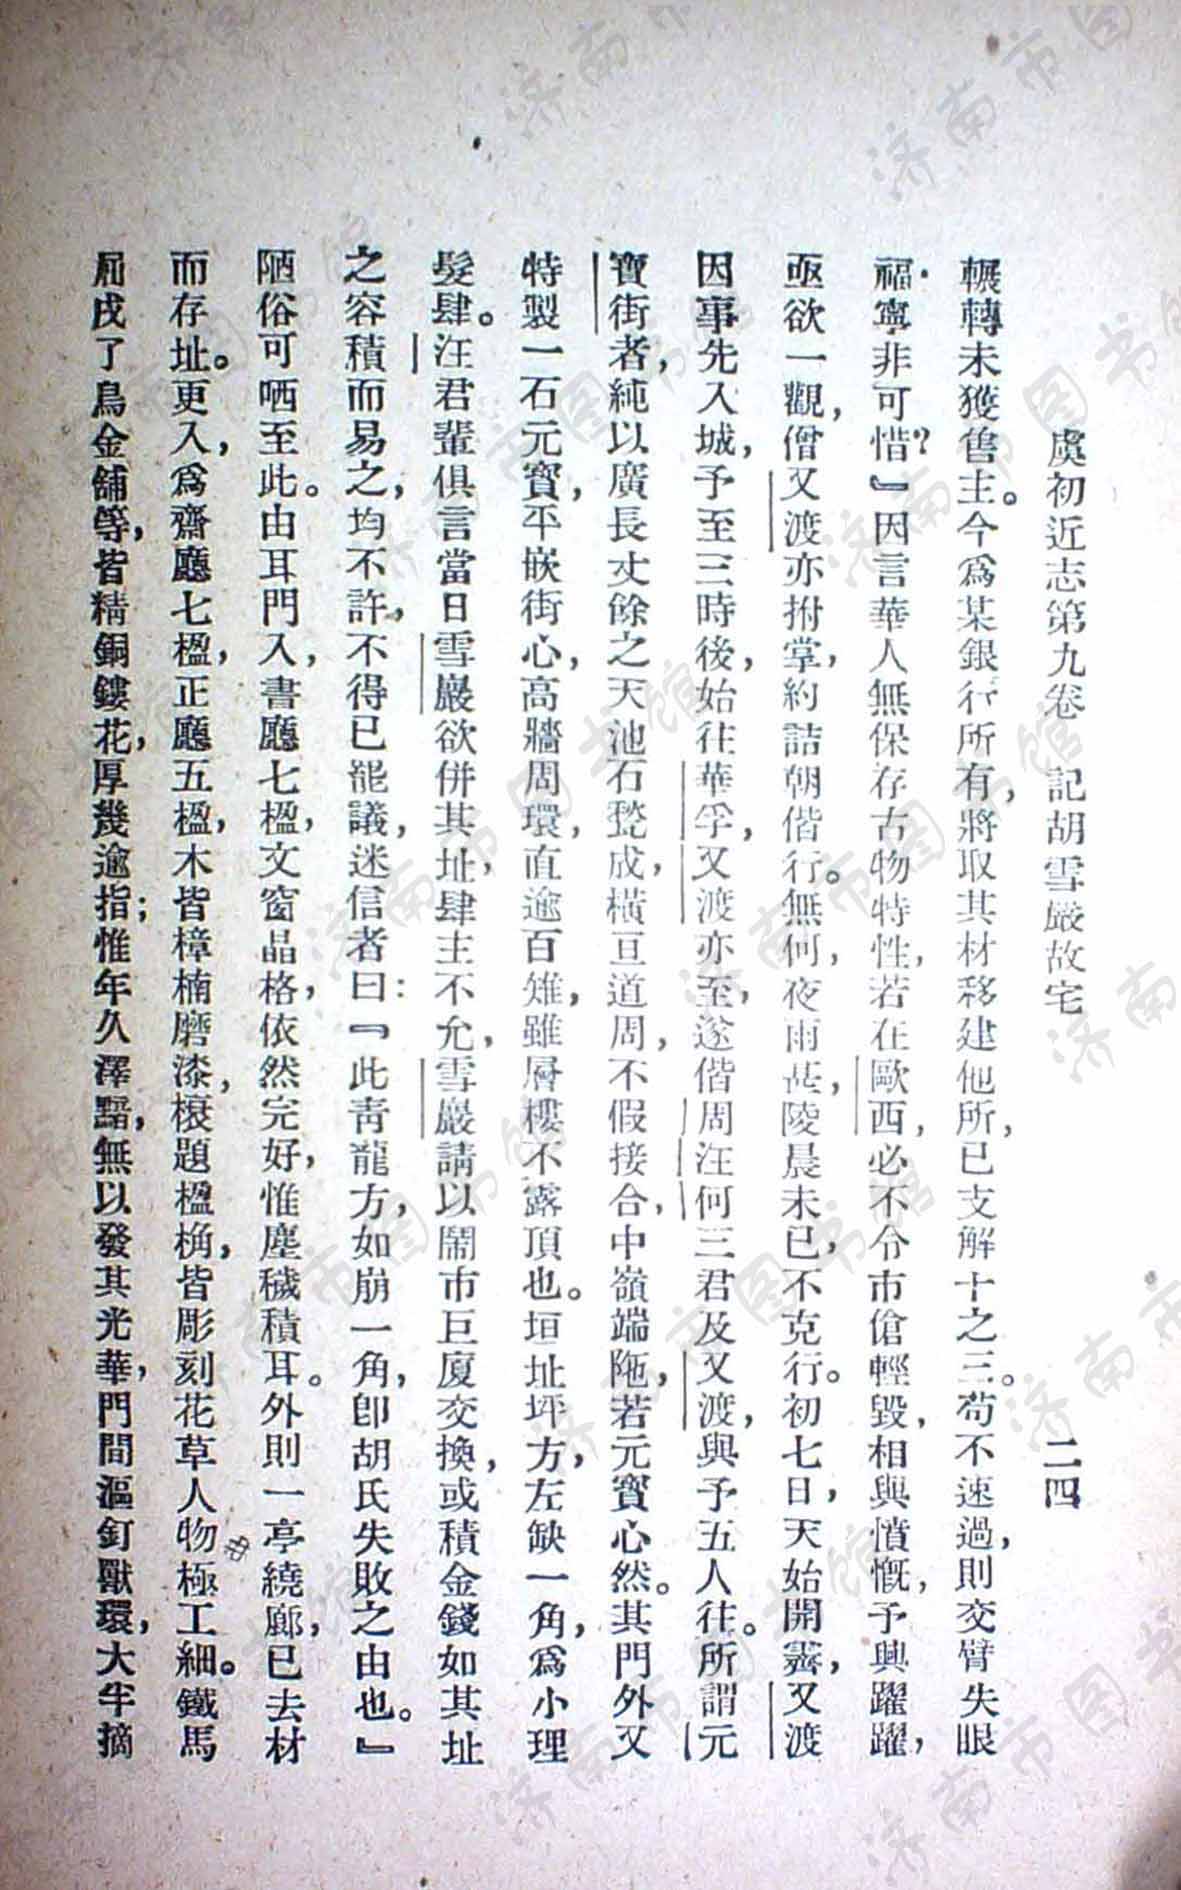 虞初近志第九卷　記胡雪巖故宅　二四
輾轉未獲售主。今爲某銀行所有，將取其材移建他所，已支解十之三。苟不速過，則交臂失眼
福，寧非可惜？』因言華人無保存古物特性，若在歐西，必不令市儈輕毀，相與憤慨，予興躍躍，
亟欲一觀，僧又渡亦拊掌，約詰朝偕行。無何，夜雨甚，陵晨未已，不克行。初七日，天始開霽，又渡
因事先入城，予至三時後，始往華孚，又渡亦至，遂偕周汪何三君及又渡，與予五人往。所謂元
寶街者，純以廣長丈餘之天池石甃成，橫亘道周，不假接合，中嶺端陁，若元寶心然。其門外又
特製一石元寶，平嵌街心，高牆周環，直逾百雉，雖層樓不露頂也。垣址坪方，左缺一角，爲小理
髮肆。汪君輩俱言當日雪巖欲併其址，肆主不允，雪巖請以鬧市巨廈交換，或積金錢如其址
之容積而易之，均不許，不得已罷議，迷信者曰：『此青龍方，如崩一角，卽胡氏失敗之由也。』
陋俗可哂至此。由耳門入，書廳七楹，文窗晶格，依然完好，惟塵穢積耳。外則一亭繞廊，已去材
而存址。更入，爲齋廳七楹，正廳五楹，木皆樟楠磨漆，榱題楹桷，皆彫刻花草人物極工細。鐵馬
屈戌了鳥金舖等，皆精銅鏤花，厚幾逾指；惟年久澤黯，無以發其光華，門間漚釘獸環，大半摘